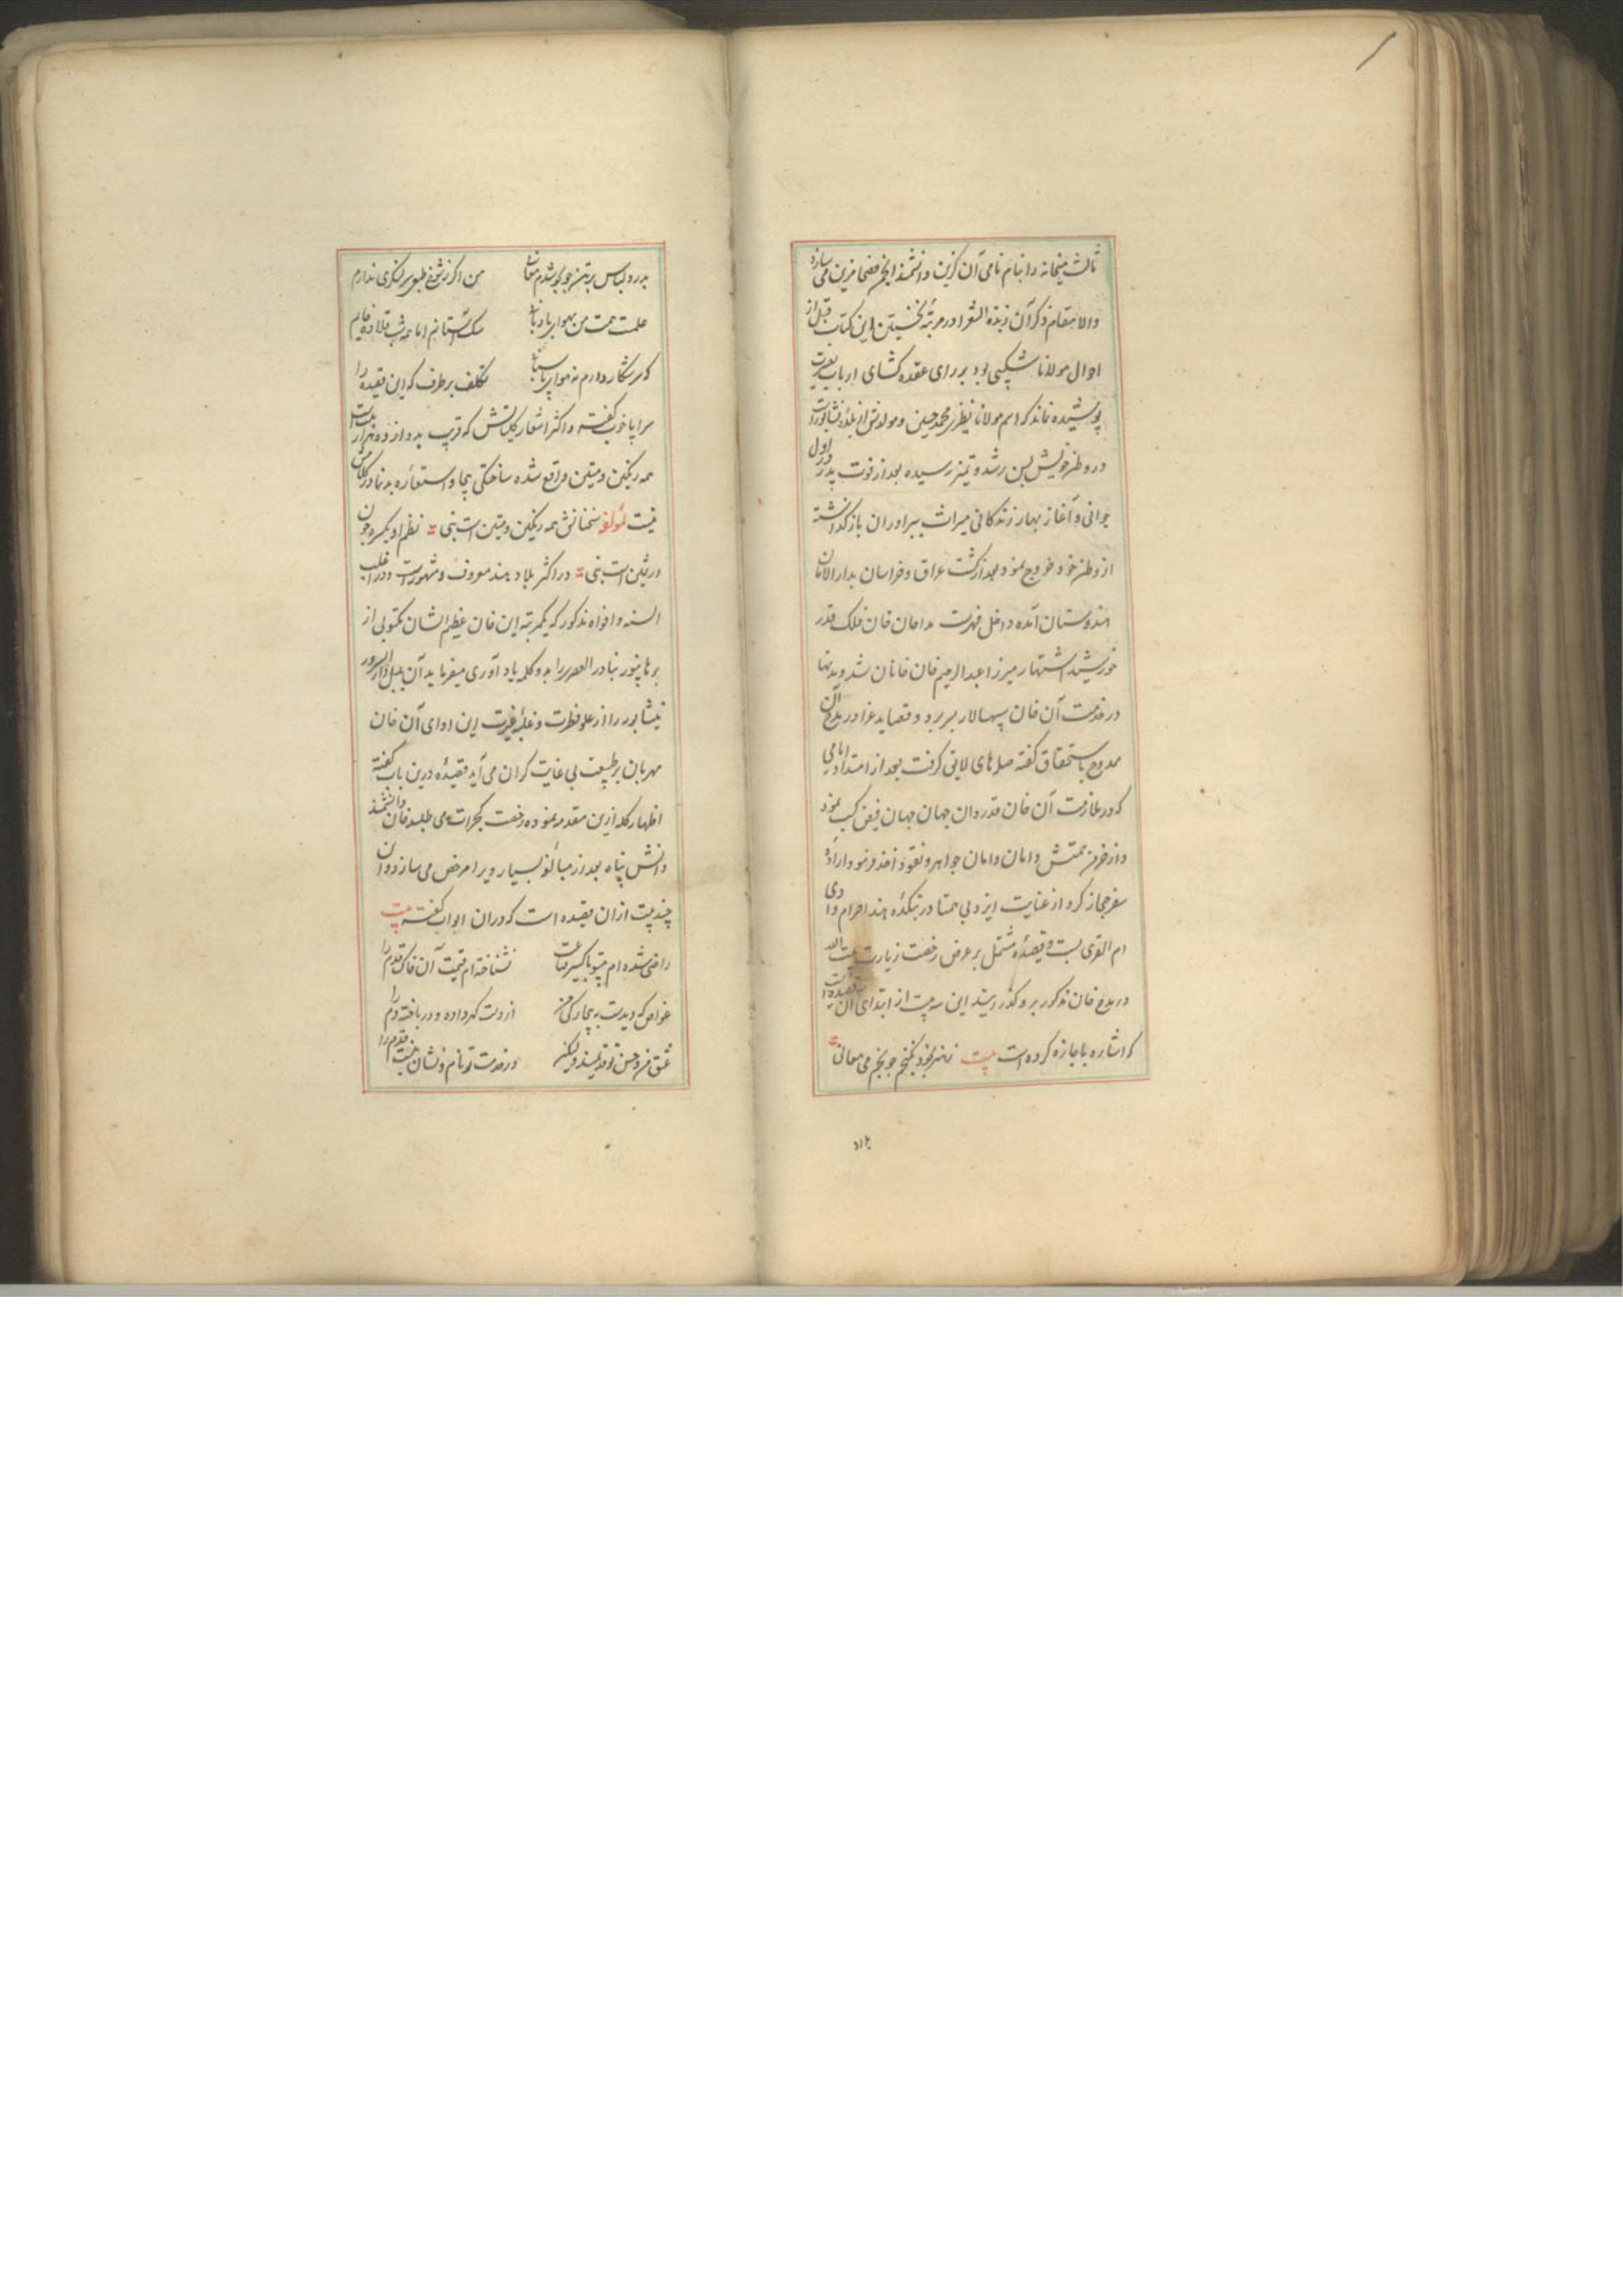 ثالث میخانه را بنام نامی آن گزین دانشمند انجمن فضحا مزین می سازد
والا مقام ذکر آن زبدة الشعرا در مرتبهٔ نخستین این کتاب قبل از
احوال مولانا شکیبی بود بر رای عقده کشای ارباب بصیرت
پوشیده نماند که اسم مولانا نظیری محمد حسین و مولدش از بلدهٔ نشابورست
در وطن خویش بسن رشد و تمیز رسیده بعد از فوت پدر در اول
جوانی و آغاز بهار زندکانی میراث ببرادران باز کذاشته
از وطن خود خروج نمود بعد از کشت عراق و خراسان بدار الامان
هندوستان آمده داخل فهرست مداحان خان فلک قدر
خورشید اشتهار میرزا عبد الرحیم خان خانان شد و مدتها
در خدمت آن خان سپهسالار بسر برد و قصاید غرا در مدح آن
ممدوح باستحقاق کفته صله های لایق کرفت بعد از امتداد ایامی
که در ملازمت آن خان قدردان جهان جهان فیض کسب نمود
و از خرمن همتش دامان دامان جواهر و نقود اخذ فرمود ارادهٔ
سفر حجاز کرد از عنایت ایزد بی همتا در بتکدهٔ هند احرام وادی
ام القری بست و قصیدهٔ مشتمل بر عرض رخصت زیارت بیت الله
در مدح خان مذکور برو کذرانید این سه بیت از ابتدای آن قصیده است
که اشاره باجازه کرده است بیت ز هنر بخود نکنجم چو بخم می معانی
بدرد
بدرد لباس بر تن چو بجوشدم معانی
من اکر ز شوخ طبعی سر لنکری ندارم
علمت همت من بهوای بادبانی
سک آستانم اما همه شب قلاده خایم
که سر شکار دارم نه هوای پاسبانی
تکلف برطرف که این قصیده را
سراپا خوب کفته و اکثر اشعار کلیاتش که قریب بدوازده هزار بیت است
همه رنکین و متین واقع شده ساختکی بیجا و استعارهٔ بدنما در کلامش
نیست لمؤلفه سخنانش همه رنکین و متین است بنی نظم او یکسره چون
در ثمین است بنی در اکثر بلاد هند معروف و مشهورست و در اغلب
السنه و افواه مذکور که یکمرتبه این خان عظیم الشان مکتوبی از
برهانپور بنادر العصری را بدو کلمه یاد آوری میفرماید آن بلبل دار السرور
نیشابور را از علو فطرت و غلبهٔ غیرت این ادای آن خان
مهربان بر طبیعت بی غایت کران می آید قصیدهٔ درین باب کفته
اظهار کله ازین مقدمه نموده رخصت کجرات می طلبد خان دانشمند
دانش پناه بعد از مبالغهٔ بسیار ویرا مرخص می سازد و آن
چند بیت ازان قصیده است که دران ابواب کفته بیت
راضی شده ام بیتو باکسیر قناعت
نشناخته ام قیمت آن خاک قدم را
غواص که دیدست بیچارکی من
از دست کهر داده و در باخته دم را
عشق من و حسن تو قدیمند ولیکن
در خدمت تو نام و نشان نیست قدم را